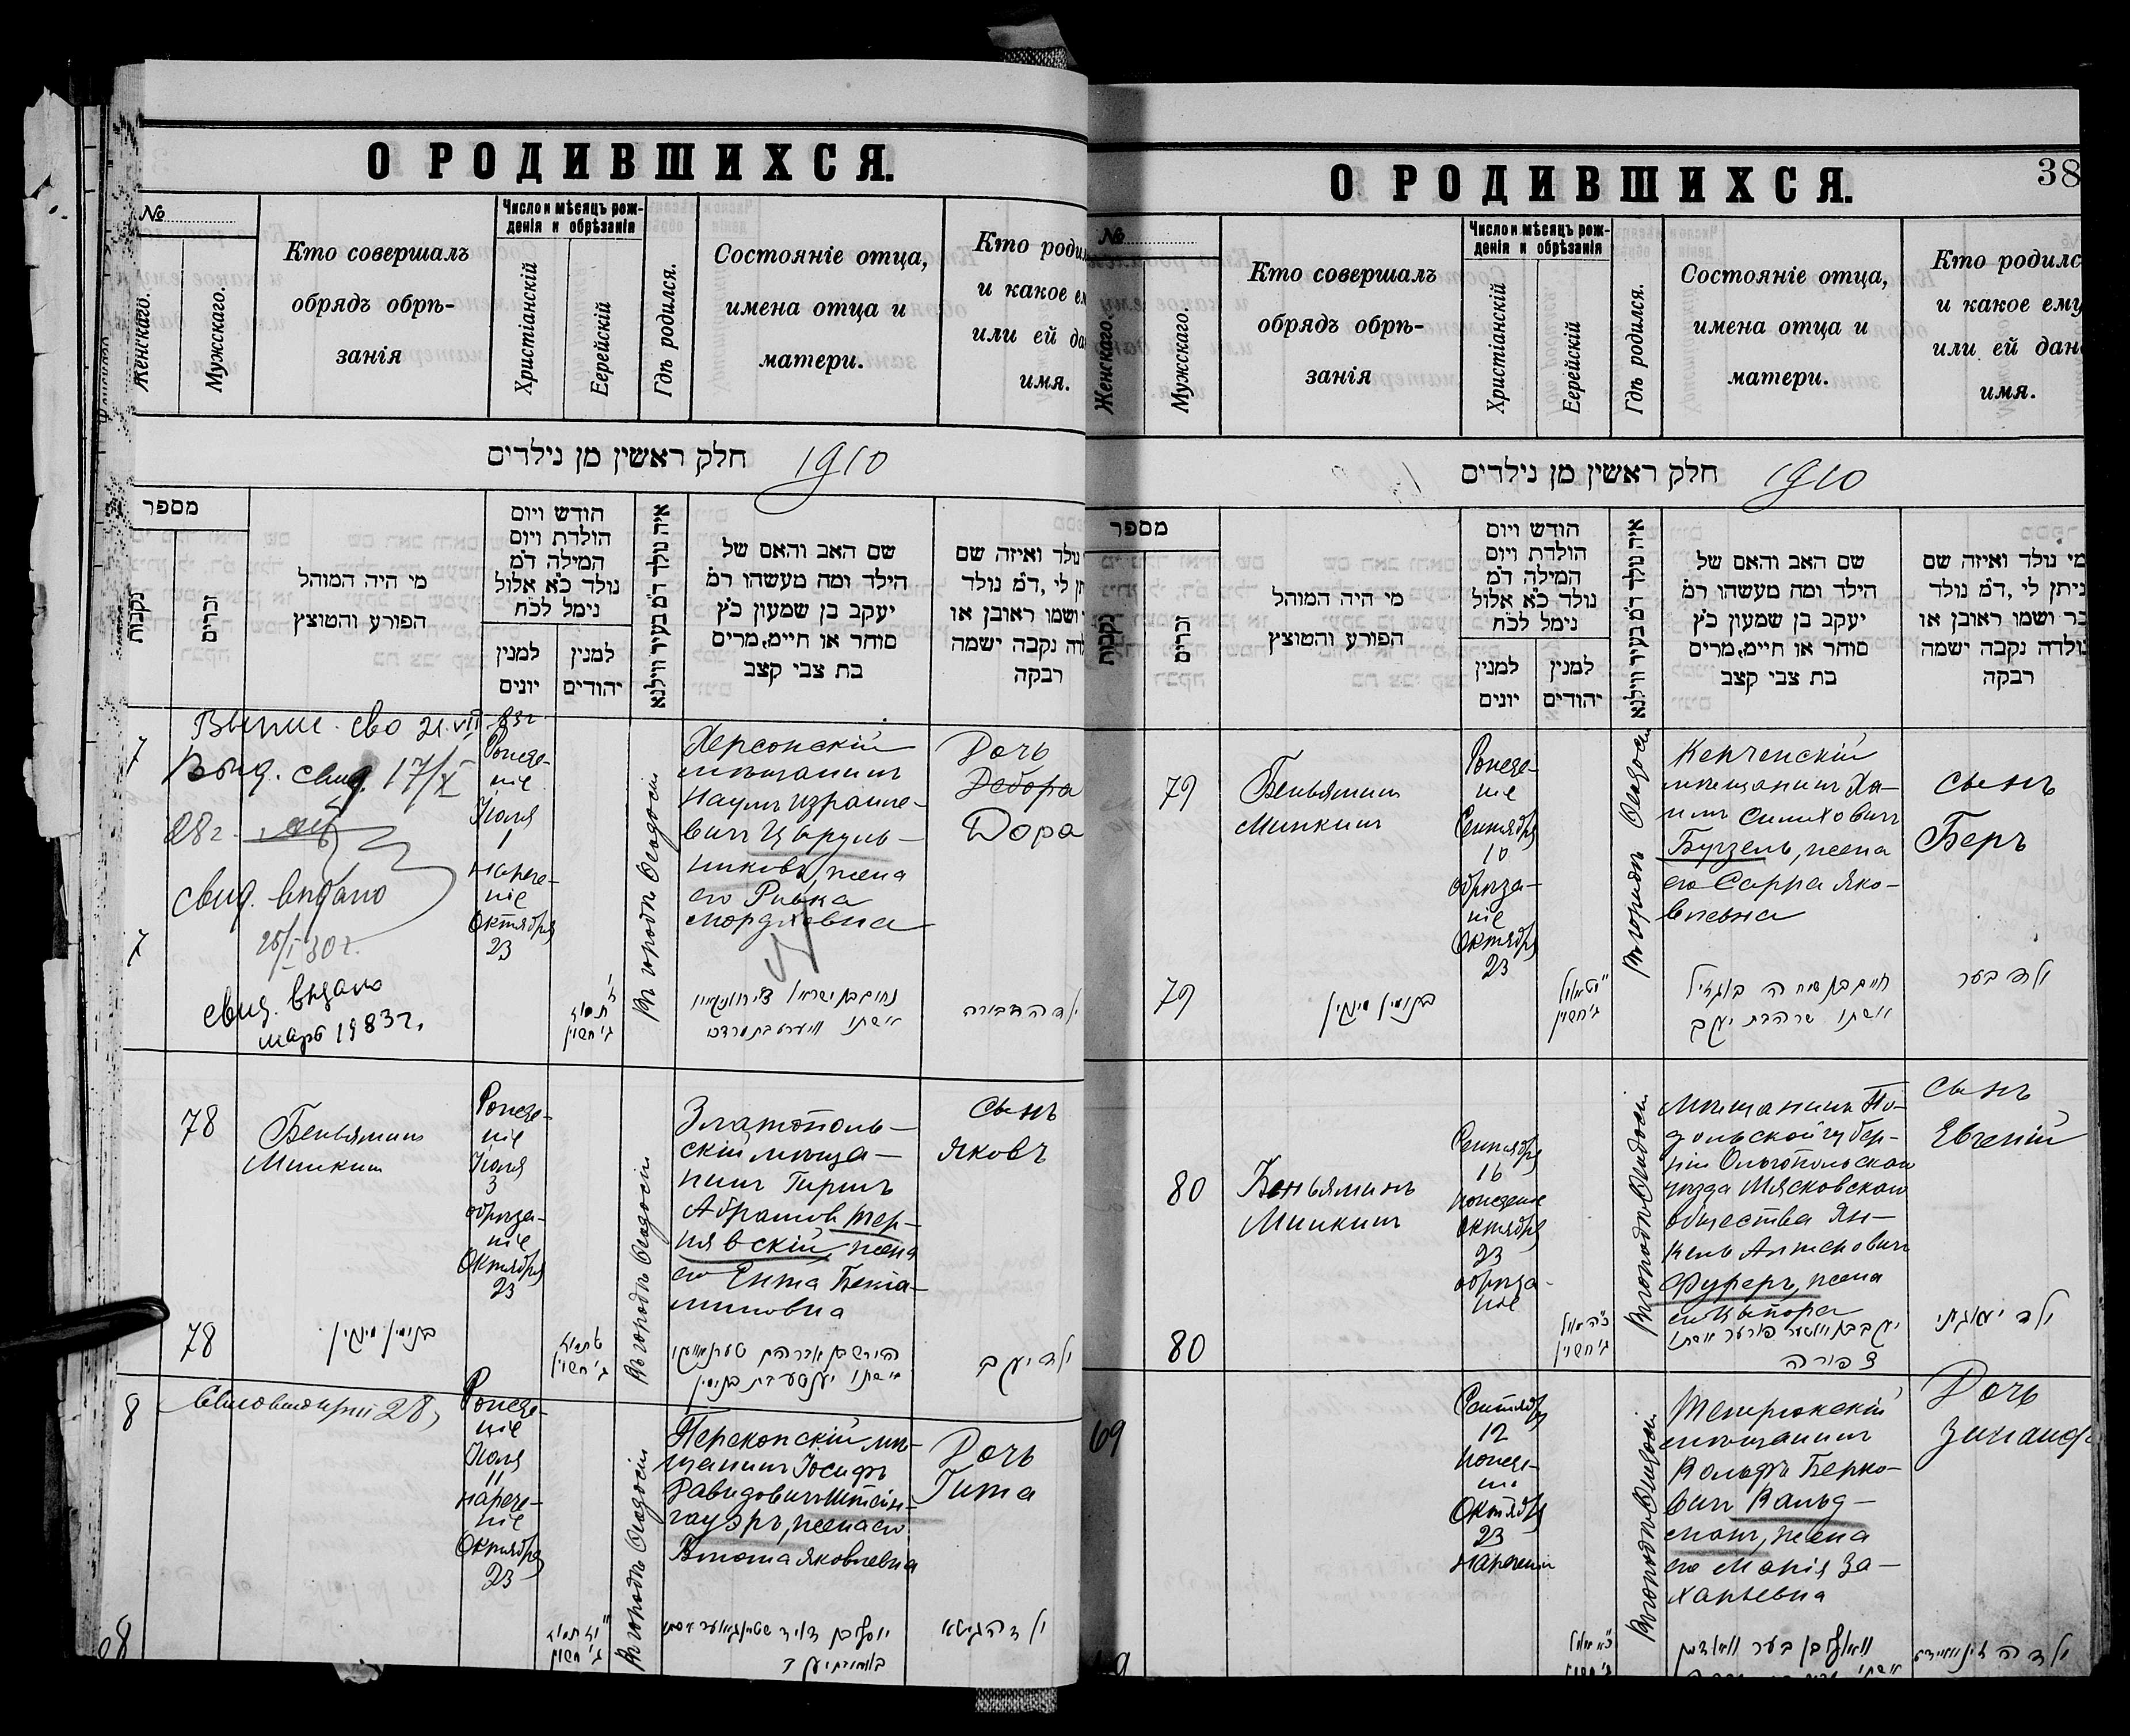 О РОДИВШИХСЯ.
№
Женскаго.
Мужскаго.
Кто совершалъ
обрядъ обрѣ-
занія
Число и мѣсяцъ рож-
денія и обрѣзанія
Христіанскій
Еерейскій
Гдѣ родился.
Состояніе отца,
имена отца и
матери.
Кто родил
и какое ем
или ей да
имя.
חלק ראשין מן נילדים 1910
מספר
נקבות
זכרים
מי היה המוהל
הפורע והטוצץ
הודש ויום
הולדת ויום
המילה דמ
נולד כא אלול
נימל לכח
למנין
יונים
למנין
יהודים
איה נולד דמ בעיר ווילנא
שם האב והאם של
הילד ומה מעשהו רמ
יעקב בן שמעון כץ
סוחר או חיימ, מרים
בת צבי קצב
נולד ואיזה שם
לי, דמ נולד
ושמו ראובן או
נקבה ישמה
רבקה
7
Выд. свид. 17/X
28 г.
свид. выдано
25/I 30 г.
7
свид. выдано
март 1983 г.
Рожде-
ніе
Іюля
1
нарече-
ніе
Октября
23
Въ городѣ Ѳеодосіи
Херсонскій
мѣщанинъ
Наумъ Израиле-
вичъ Цыруль-
никовъ, жена
его Ривка
Мордховна
Дочь
Дебора
Дора
78
Беньяминъ
Минкинъ
Рожде-
ніе
Іюля
3
обрѣза-
ніе
Октября
23
Въ городѣ Ѳеодосіи
Златополь-
скій мѣща-
нинъ Гиршъ
Абрамов Тер-
нявскій, жена
его Ента Бенья-
миновна
сынъ
Яковъ
78
בנימין מינקין
ילד יעקב
8
Рожде-
ніе
Іюля
11
нарече-
ніе
Октября
23
Въ городѣ Ѳеодосіи
Перекопскій мѣ-
щанинъ Іосифъ
Давидовичъ Штейн-
гауэръ, жена его
Яковлевна
Дочь
Гита
68
О РОДИВШИХСЯ.
38
№
Женскаго.
Мужскаго.
Кто совершалъ
обрядъ обрѣ-
занія
Число и мѣсяцъ рож-
денія и обрѣзанія
Христіанскій
Еерейскій
Гдѣ родился.
Состояніе отца,
имена отца и
матери.
Кто родилс
и какое ему
или ей дан
имя.
חלק ראשין מן נילדים 1910
מספר
נקבות
זכרים
מי היה המוהל
הפורע והטוצץ
הודש ויום
הולדת ויום
המילה דמ
נולד כא אלול
נימל לכח
למנין
יונים
למנין
יהודים
איה נולד דמ בעיר ווילנא
שם האב והאם של
הילד ומה מעשהו רמ
יעקב בן שמעון כץ
סוחר או חיימ, מרים
בת צבי קצב
מי נולד ואיזה שם
ניתן לי, דמ נולד
ושמו ראובן או
נקבה ישמה
רבקה
79
Беньяминъ
Минкинъ
Рожде-
ніе
Сентября
10
обрѣза-
ніе
Октября
23
Въ городѣ Ѳеодосіи
Керченскій
мѣщанинъ Ха-
имъ Симховичъ
Бугзель, жена
его Сарра Яко-
влевна
сынъ
Беръ
79
בנימין מינקין
ילד בער
80
Беньяминъ
Минкинъ
Сентября
16
рожденіе
Октября
23
обрѣза-
ніе
Въ городѣ Ѳеодосіи
Мѣщанинъ По-
дольской губер-
ніи Ольгопольскаго
уѣзда Мясковскаго
общества Ян-
кель
Фуреръ, жена
его Ципора
сынъ
Евгеній
80
צפורה
69
Сентября
12
рожде-
ніе
Октября
23
нареченіе
Въ городѣ Ѳеодосіи
Темрюкскій
мѣщанинъ
Вольфъ Берко-
вичъ Вальд-
манъ, жена
его Марія За-
харьевна
Дочь
Зинаида